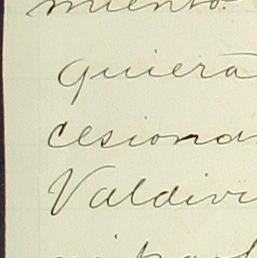 miento.
quiera
cesiona
Valdivi